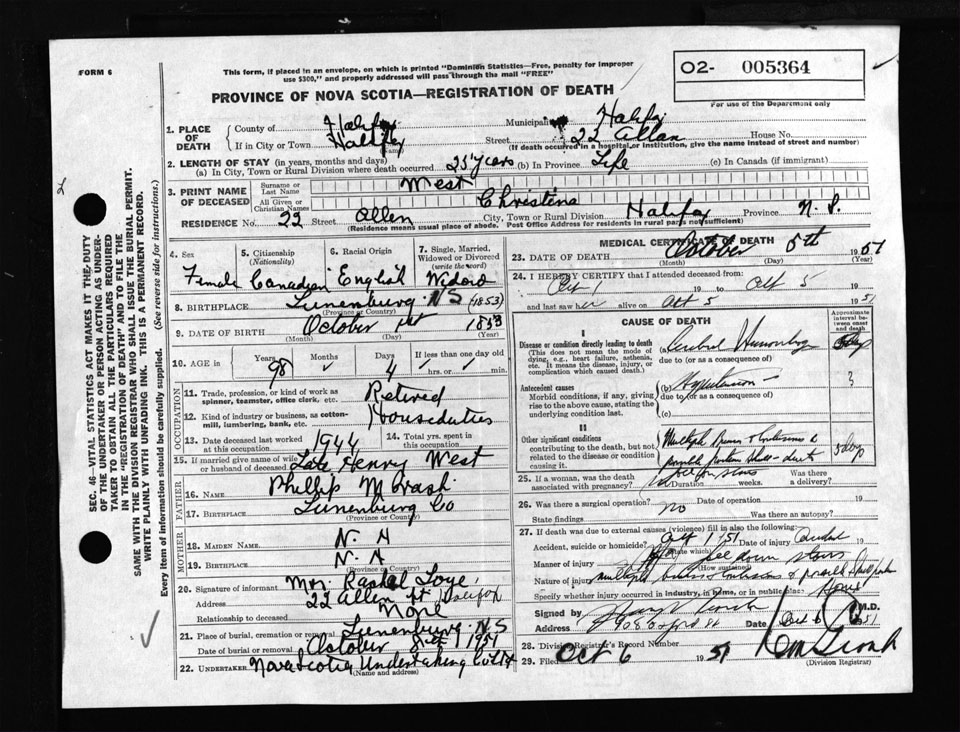 FORM 6
This form, if placed in an envelope, on which is printed "Dominion Statistics—Free, penalty for improper
use $300," and properly addressed will pass through the mail "FREE"
O2- 005364
For use of the Department only
PROVINCE OF NOVA SCOTIA—REGISTRATION OF DEATH
SEC. 46—VITAL STATISTICS ACT MAKES IT THE DUTY
OF THE UNDERTAKER OR PERSON ACTING AS UNDER-
TAKER TO OBTAIN ALL THE PARTICULARS REQUIRED
IN THE "REGISTRATION OF DEATH" AND TO FILE THE
SAME WITH THE DIVISION REGISTRAR WHO SHALL ISSUE THE BURIAL PERMIT.
WRITE PLAINLY WITH UNFADING INK. THIS IS A PERMANENT RECORD.
Every item of information should be carefully supplied. (See reverse side for instructions.)
1. PLACE OF DEATH
County of Halifax Municipality Halifax
If in City or Town Halifax (Name) Street 22 Allan House No.
(If death occurred in a hospital or institution, give the name instead of street and number)
2. LENGTH OF STAY (in years, months and days)
(a) In City, Town or Rural Division where death occurred 25 years (b) In Province Life (c) In Canada (if immigrant)
3. PRINT NAME OF DECEASED
Surname or Last Name West
All Given or Christian Names Christina
RESIDENCE No. 22 Street Allen City, Town or Rural Division Halifax Province N.S.
(Residence means usual place of abode. Post Office Address for residents in rural parts not sufficient)
4. Sex Female
5. Citizenship (Nationality) Canadian
6. Racial Origin English
7. Single, Married, Widowed or Divorced (write the word) Widow
8. BIRTHPLACE Lunenburg NS (1853)
(Province or Country)
9. DATE OF BIRTH October 1st 1853
(Month) (Day) (Year)
10. AGE in Years 98 Months ✓ Days 4 If less than one day old hrs. or min.
OCCUPATION
11. Trade, profession, or kind of work as spinner, teamster, office clerk, etc. Retired
12. Kind of industry or business, as cotton-mill, lumbering, bank, etc. Houseduties
13. Date deceased last worked at this occupation 1944
14. Total yrs. spent in this occupation
15. If married give name of wife or husband of deceased Late Henry West
FATHER
16. NAME Phillip Morash
17. BIRTHPLACE Lunenburg Co
(Province or Country)
MOTHER
18. MAIDEN NAME N. A
19. BIRTHPLACE N. A
(Province or Country)
20. Signature of informant Mrs. Rachel
Address 22 Allen St Halifax
Relationship to deceased None
21. Place of burial, cremation or removal Lunenburg NS
Date of burial or removal October 8th 1951
22. UNDERTAKER Nova Scotia Undertaking Co Ltd
(Name and address)
MEDICAL CERTIFICATE OF DEATH
23. DATE OF DEATH October 5th 1951
(Month) (Day) (Year)
24. I HEREBY CERTIFY that I attended deceased from
Oct 1 19 to Oct 5
and last saw alive on Oct 5 1951
CAUSE OF DEATH
Approximate interval between onset and death
I
Disease or condition directly leading to death
(This does not mean the mode of dying, e.g., heart failure, asthenia, etc. It means the disease, injury, or complication which caused death.)
(a) Cerebral Hemorrhage
due to (or as a consequence of)
Antecedent causes
Morbid conditions, if any, giving rise to the above cause, stating the underlying condition last.
(b) Hypertension ?
due to (or as a consequence of)
(c)
II
Other significant conditions contributing to the death, but not related to the disease or condition causing it.
Multiple Bruises & Contusions &
possible 5 days
25. If a woman, was the death associated with pregnancy? Duration weeks. Was there a delivery?
26. Was there a surgical operation? no Date of operation 19
State findings Was there an autopsy?
27. If death was due to external causes (violence) fill in also the following:
Accident, suicide or homicide? (State which) Date of injury Oct 1 '51 Accident
Manner of injury fell down stairs
(How sustained)
Nature of injury multiple bruises & contusions & possible
Specify whether injury occurred in Industry, in Home, or in public place. Home
Signed by M.D.
Address Oxford St Date Oct 6 1951
28. Division Registrar's Record Number
29. Filed Oct 6 1951
(Division Registrar)